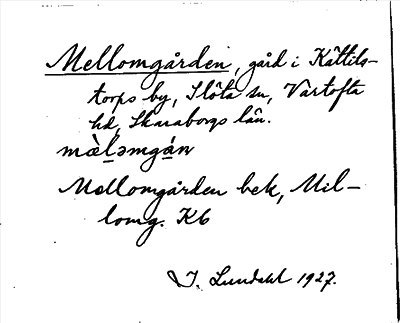 Mellomgården, gård i Kättils-
torps by, Slöta sn, Vartofta
hd, Skaraborgs län.
mæ̀l̠əmgá̠n
Mellomgården bek, Mil-
lomg. Kb
I. Lundahl 1927.